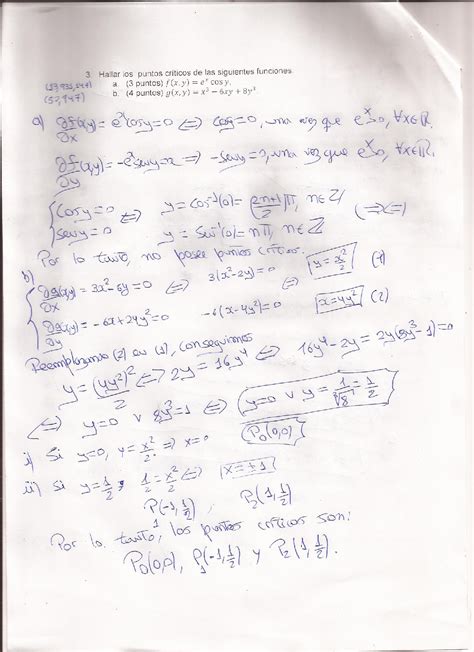 3. Hallar los puntos críticos de las siguientes funciones
a. (3 puntos) f(x,y) = e^x cos y.
b. (4 puntos) g(x,y) = x³ − 6xy + 8y³
(52,947)
a) ∂f/∂x (x,y) = e^x cos y = 0 ⟺ cos y = 0, una vez que e^x > 0, ∀x∈ℝ.
∂f/∂y (x,y) = −e^x sen y = 0 ⟹ −sen y = 0, una vez que e^x > 0, ∀x∈ℝ.
{ cos y = 0 ⟺ y = cos⁻¹(0) = (2n+1)/2 π, n∈ℤ
{ sen y = 0 y = sin⁻¹(0) = nπ, n∈ℤ
Por lo tanto, no posee puntos críticos.
b)
{ ∂g/∂x (x,y) = 3x² − 6y = 0 3(x² − 2y) = 0 y = x²/2 (1)
{ ∂g/∂y (x,y) = −6x + 24y² = 0 −6(x − 4y²) = 0 x = 4y² (2)
Reemplazando (2) en (1), conseguimos
y = (4y²)²/2 ⟺ 2y = 16y⁴ ⟺ 16y⁴ − 2y = 2y(8y³ − 1) = 0
⟺ y = 0 ∨ 8y³ = 1 ⟺ y = 0 ∨ y = 1/∛8 = 1/2
i) Si y = 0, y = x²/2 ⟹ x = 0 P₀(0,0)
ii) Si y = 1/2, 1/2 = x²/2 ⟺ x = ±1
P₁(−1, 1/2) P₂(1, 1/2)
Por lo tanto, los puntos críticos son:
P₀(0,0), P₁(−1, 1/2) y P₂(1, 1/2).